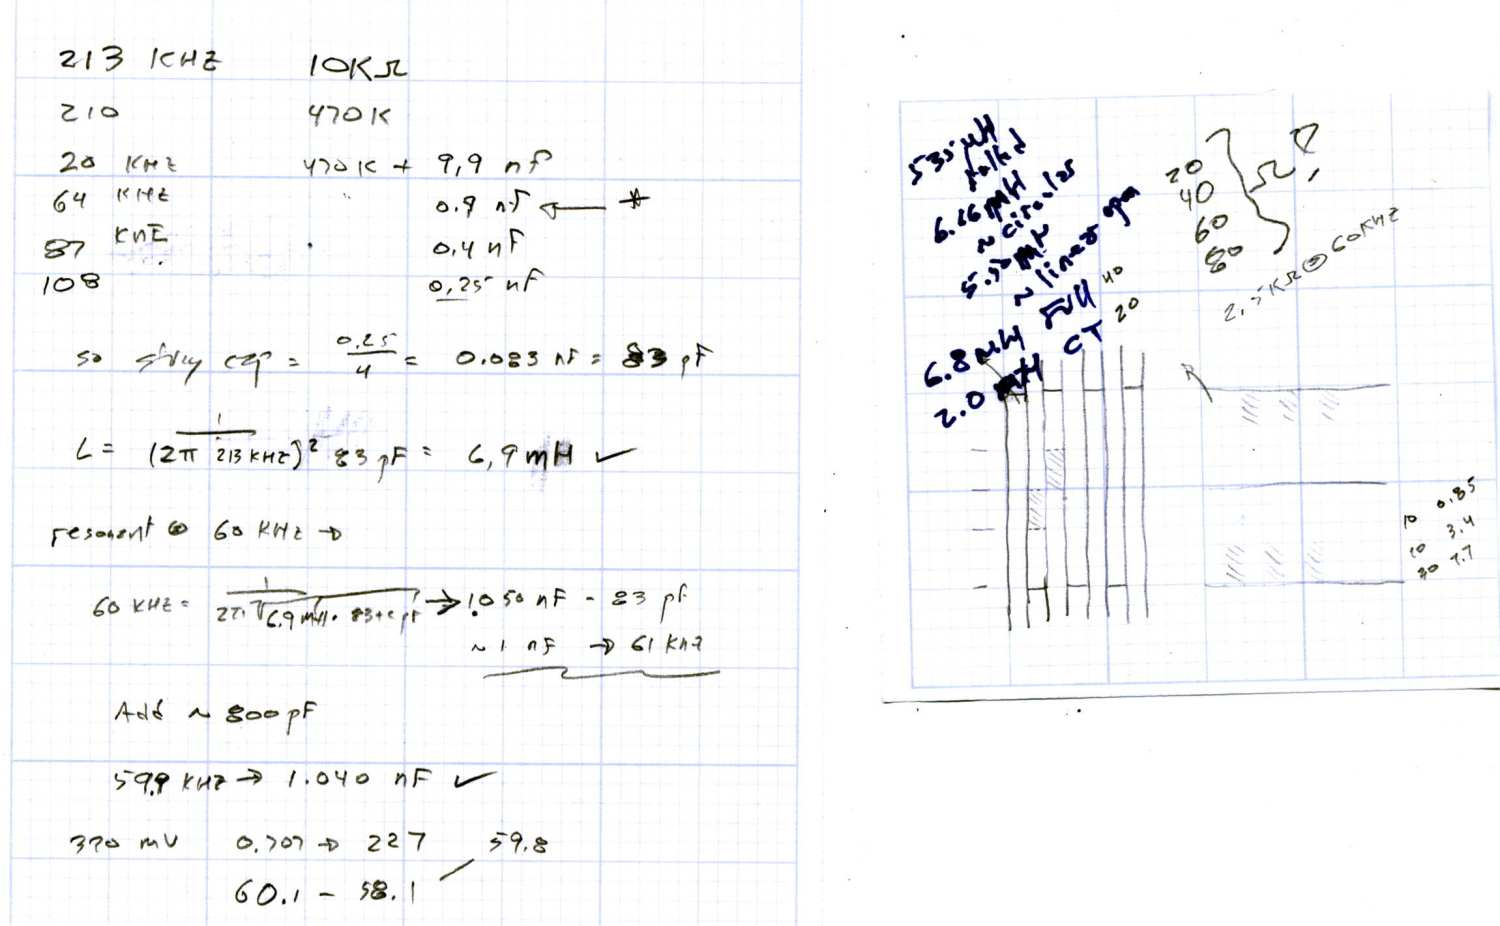 213 KHZ 10KΩ
210 470K
20 KHZ 470K + 9,9 nF
64 KHZ " 0.9 nF ← *
87 KHZ " 0.4 nF
108 0,25 nF
so stray cap = 0.25/4 = 0.083 nF = 83 pF
L = 1/(2π 213 KHZ)² 83 pF = 6,9 mH ✓
resonant @ 60 KHZ →
60 KHZ = 1/2π√6.9 mH · 83+c pF → 1.050 nF - 83 pF
~ 1 nF → 61 KHZ
Add ~ 800 pF
59.9 KHZ → 1.040 nF ✓
320 mV 0.707 → 227 59.8
60.1 - 58.1
535 µH
folded
6.16 mH
~ circular
5.50 mH
~ linear open
6.8 mH Full 40
2.0 mH CT 20
20
40
60
80
Ω ?
2,5KΩ @ 60KHZ
R
10 0.85
10 3.4
30 7.7